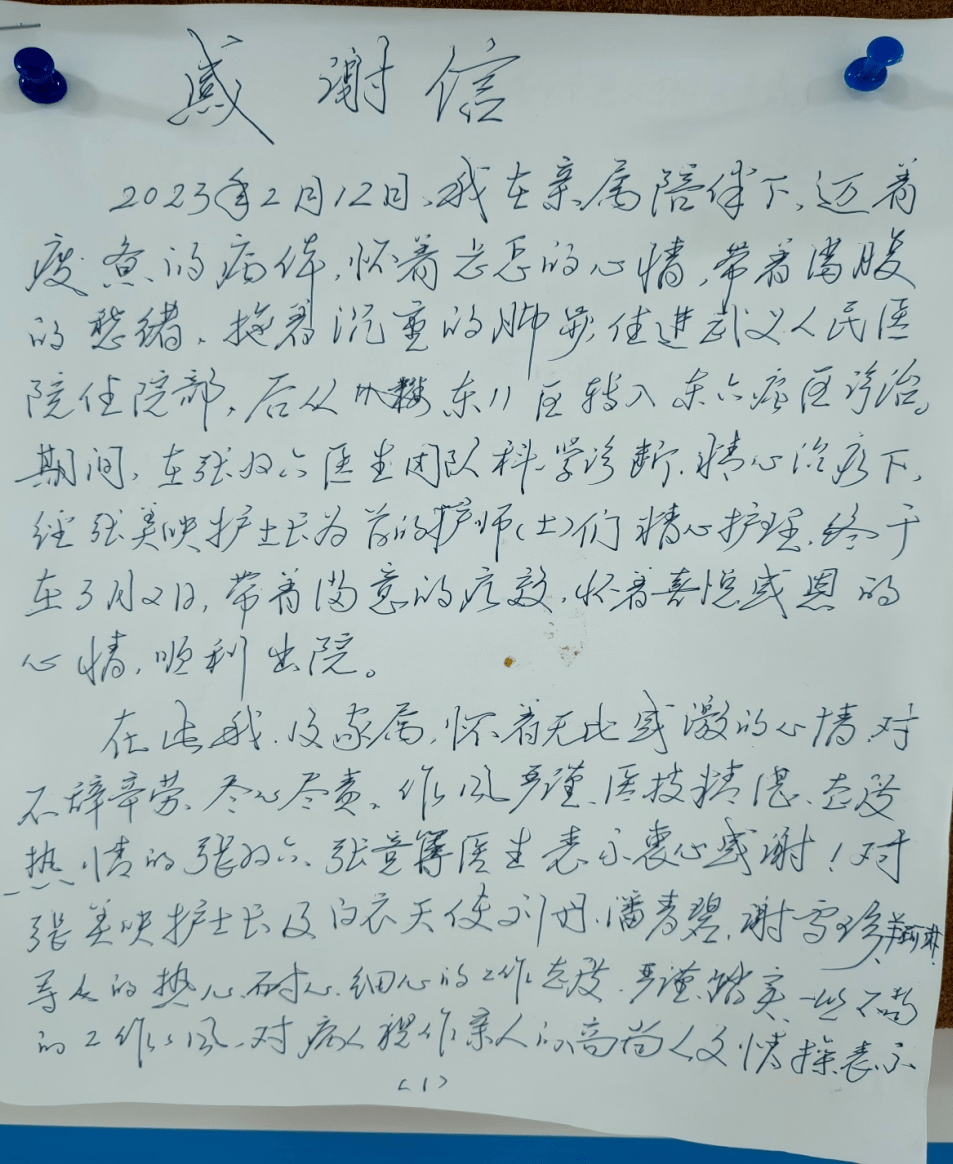 感谢信
2023年2月12日、我在亲属陪伴下、迈着
疲惫的病体,怀着忐忑的心情,带着满腹
的愁绪、拖着沉重的脚步,住进武义人民医
院住院部,后从东11区转入东六病区诊治。
期间,在张双六医生团队科学诊断、精心治疗下,
经张美映护士长为首的护师(士)们精心护理、终于
在3月2日,带着满意的疗效,怀着喜悦感恩的
心情,顺利出院。
在此我、及家属,怀着无比感激的心情、对
不辞辛劳、尽心尽责、作风严谨、医技精湛、态度
热情的张双六、张竞箨医生表示衷心感谢!对
张美映护士长及白衣天使刘丹、潘青碧、谢雪珍、
等人的热心、耐心、细心的工作态度、严谨、踏实、一丝不苟
的工作作风、对病人视作亲人的高尚人文情操表示
(1)